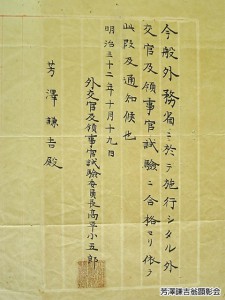 今般外務省ニ於テ施行シタル外
交官及領事官試驗ニ合格セリ依テ
此段及通知候也
明治三十二年十月十九日
外交官及領事官試驗委員長高平小五郎
芳澤謙吉殿
芳澤謙吉翁顕彰会